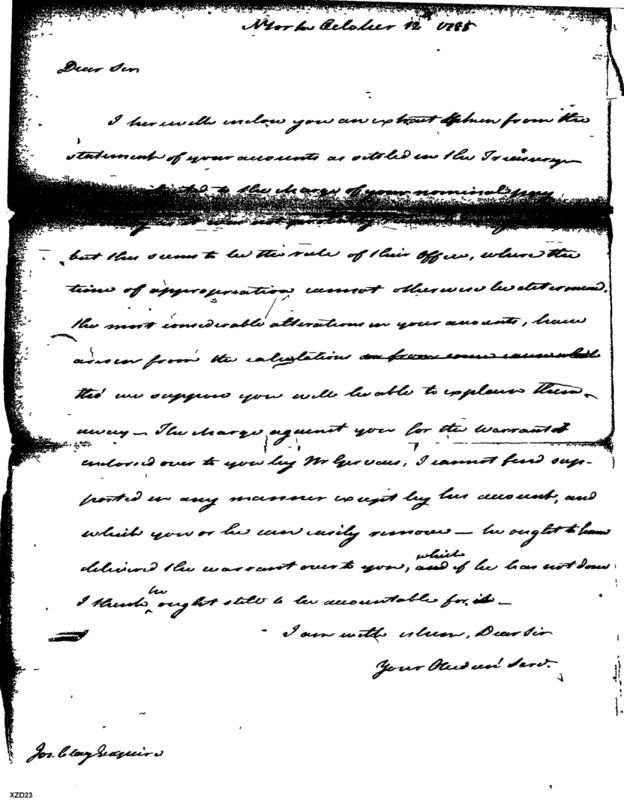 NYork October 12th 1785
Dear Sir
I herewith enclose you an extract taken from the
statement of your accounts as settled in the Treasury
to the charge of your nominal pay
was not
but this seems to be the rule of their Office, where the
time of appropriation cannot otherwise be determined.
the most considerable alterations in your accounts, have
arisen from the calculations or from some cause which
tho' we suppose you will be able to explain them
away — The charge against you for the warrant
endorsed over to you by Mr Gervais, I cannot find sup-
ported in any manner except by his account, and
which you or he can easily remove — he ought to have
delivered the warrant over to you, which and if he has not done
I think he ought still to be accountable for it —
I am with esteem, Dear Sir
Your Obedient Servt.
Jos. Clay Esquire
XZD23